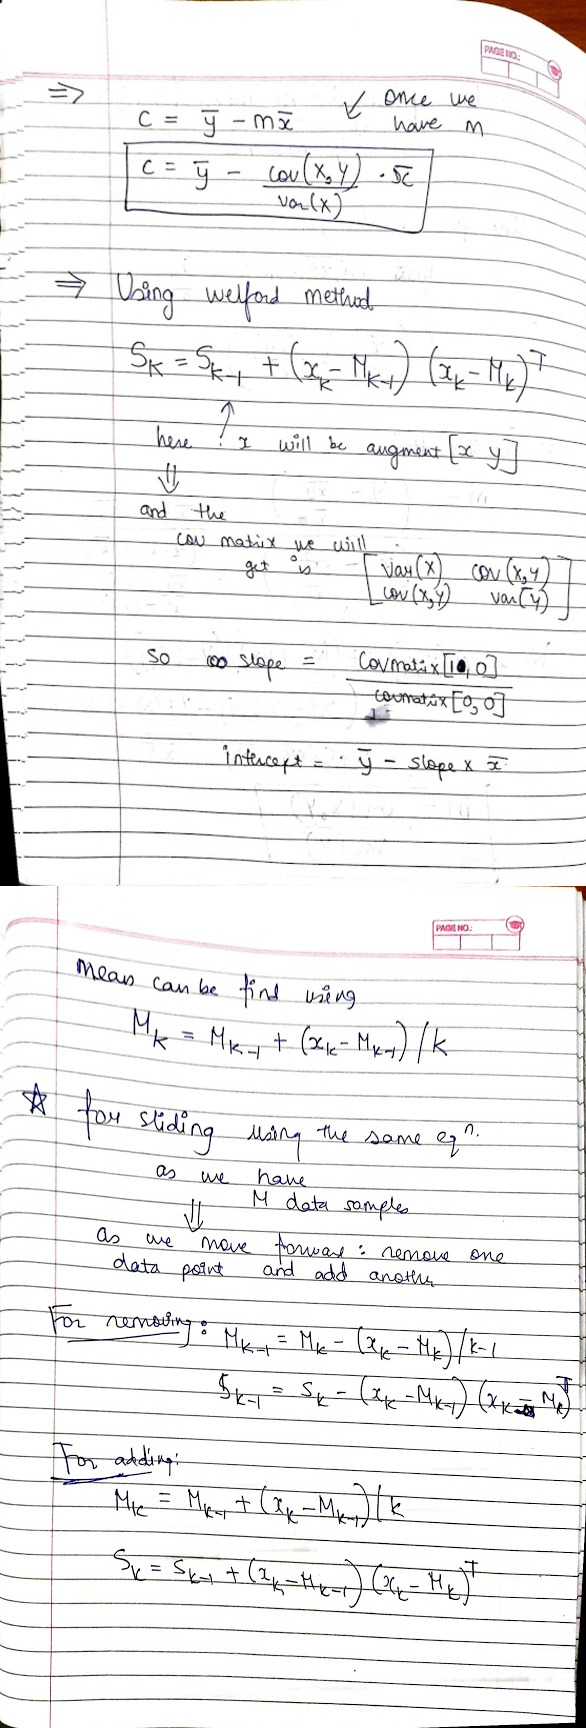 PAGE NO.:
⇒ c = ȳ - mx̄ ↙ once we
have m
c = ȳ - cov(x,y)/var(x) · x̄
⇒ Using welford method
S_k = S_{k-1} + (x_k - M_{k-1}) (x_k - M_k)^T
↑
here : x will be augment [x y]
⇓
and the
cov matrix we will
get is [var(x) cov(x,y)
cov(x,y) var(y)]
so slope = Covmatrix[1, 0]
covmatrix[0, 0]
intercept = ȳ - slope x x̄
PAGE NO.:
Mean can be find using
M_k = M_{k-1} + (x_k - M_{k-1}) / k
☆ for sliding using the same eqⁿ.
as we have
M data samples
⇓
as we move forward : remove one
data point and add another
For removing : M_{k-1} = M_k - (x_k - M_k) / k-1
S_{k-1} = S_k - (x_k - M_{k-1}) (x_k - M_k)^T
For adding:
M_k = M_{k-1} + (x_k - M_{k-1}) / k
S_k = S_{k-1} + (x_k - M_{k-1}) (x_k - M_k)^T